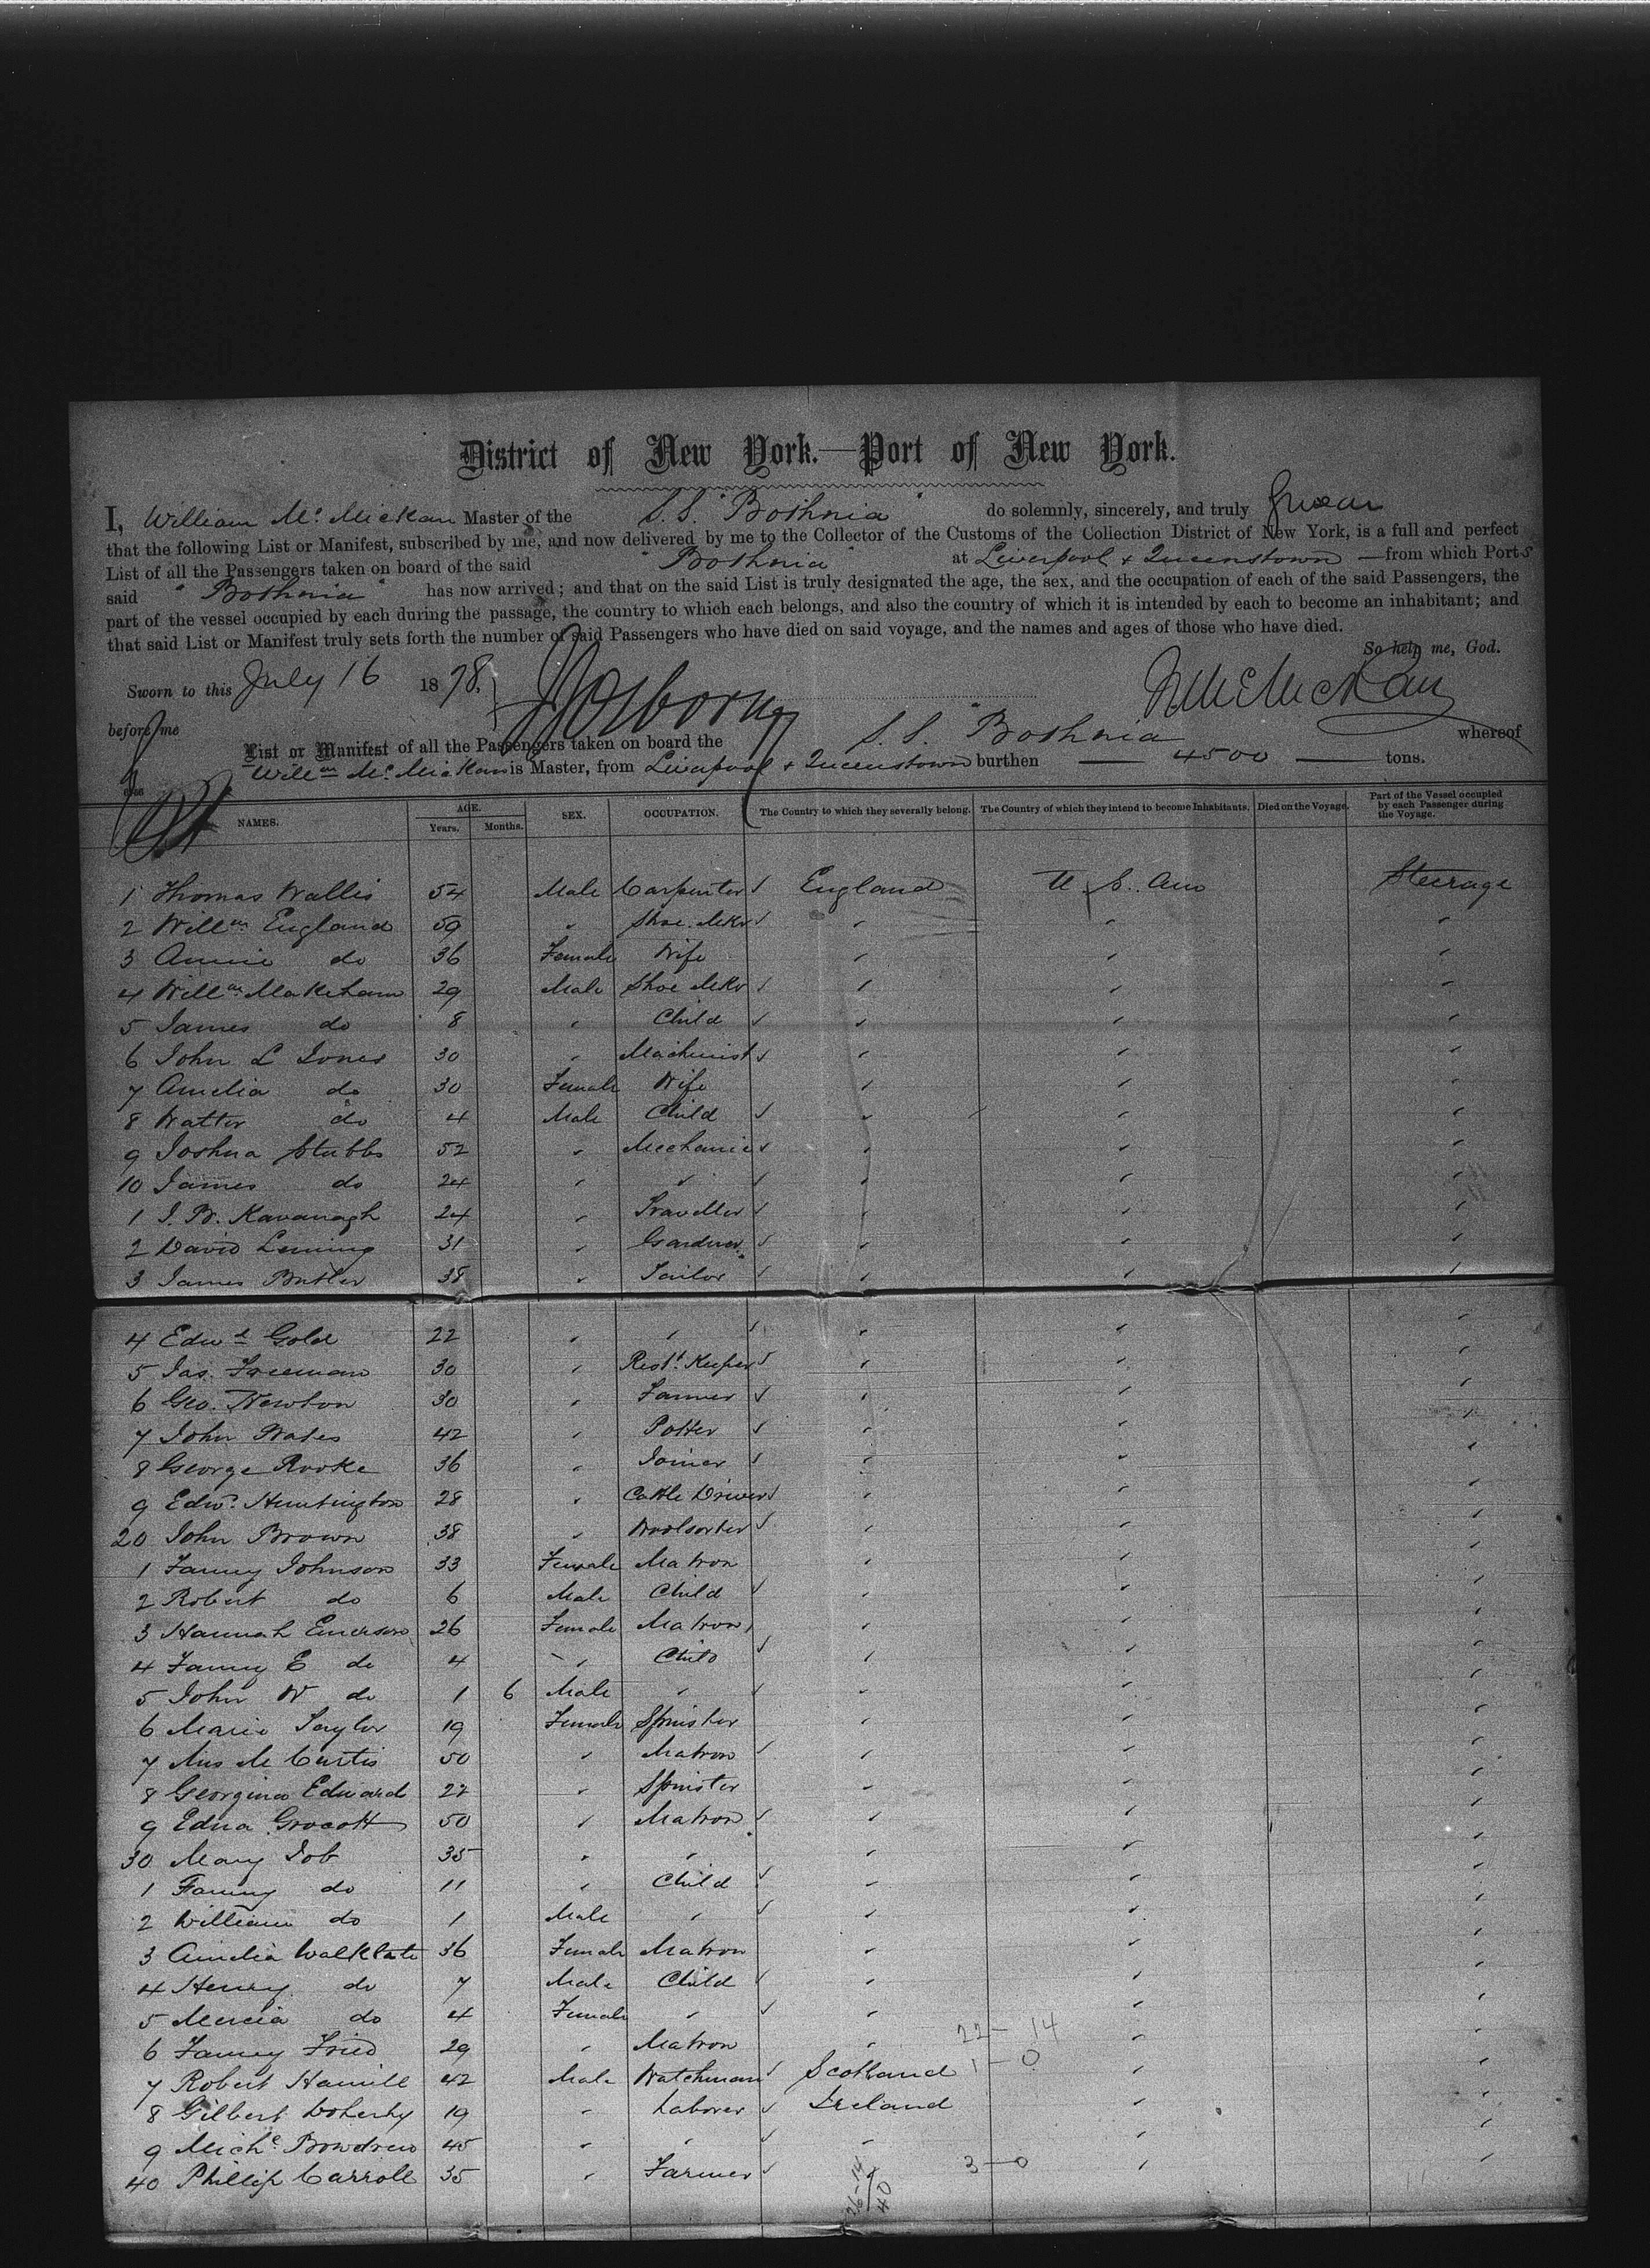 District of New York.—Port of New York.
I, William Mc. Mickan Master of the S.S. "Bothnia" do solemnly, sincerely, and truly Swear
that the following List or Manifest, subscribed by me, and now delivered by me to the Collector of the Customs of the Collection District of New York, is a full and perfect
List of all the Passengers taken on board of the said "Bothnia" at Liverpool & Queenstown — from which Ports
said "Bothnia" has now arrived; and that on the said List is truly designated the age, the sex, and the occupation of each of the said Passengers, the
part of the vessel occupied by each during the passage, the country to which each belongs, and also the country of which it is intended by each to become an inhabitant; and
that said List or Manifest truly sets forth the number of said Passengers who have died on said voyage, and the names and ages of those who have died.
So help me, God.
Sworn to this July 16 1878.
before me
List or Manifest of all the Passengers taken on board the S.S. "Bothnia whereof
Willm Mc. Mickan is Master, from Liverpool & Queenstown burthen — 4500 — tons.
NAMES. AGE. Years. Months. SEX. OCCUPATION. The Country to which they severally belong. The Country of which they intend to become Inhabitants. Died on the Voyage. Part of the Vessel occupied by each Passenger during the Voyage.
1 Thomas Wallis 54 Male Carpenter England U. S. Am Steerage
2 Willm England 59 " Shoe. Mkr " " "
3 Annie do 36 Female Wife " " "
4 Willm Makeham 29 Male Shoe Mkr " " "
5 James do 8 " Child " " "
6 John L Jones 30 " Machinist " " "
7 Amelia do 30 Female Wife " " "
8 Watter do 4 Male Child " " "
9 Joshua Stubbs 52 " Mechanic " " "
10 James do 24 " " " " "
1 J. W. Kavanagh 24 " Traveller " " "
2 David Leming 31 " Gardner " " "
3 James Butler 38 " Tailor " " "
4 Edwd Gold 22 " " " " "
5 Jas. Freeman 30 " Restt. Keeper " " "
6 Geo. Newton 30 " Farmer " " "
7 John Bates 42 " Potter " " "
8 George Rooke 36 " Joiner " " "
9 Edw. Huntington 28 " Cattle Driver " " "
20 John Brown 38 " Woolsorter " " "
1 Fanny Johnson 33 Female Matron " " "
2 Robert do 6 Male Child " " "
3 Hannah Emerson 26 Female Matron " " "
4 Fanny E do 4 " Child " " "
5 John W do 1 6 Male " " " "
6 Marie Taylor 19 Female Spinster " " "
7 M Curtis 50 " Matron " " "
8 Georgina Edward 22 " Spinster " " "
9 Edna Grocott 50 " Matron " " "
30 Mary Job 35 " " " " "
1 Fanny do 11 " Child " " "
2 William do 1 Male " " " "
3 Amelia Walklate 36 Female Matron " " "
4 Henry do 7 Male Child " " "
5 Mercia do 4 Female " " " "
22 — 14
6 Fanny Fried 29 " Matron " " "
7 Robert Hamill 42 Male Watchman Scotland 1 — 0 " "
8 Gilbert Doherty 19 " Laborer Ireland " "
9 Michl. Bowdren 45 " " " " "
40 Phillip Carroll 35 " Farmer " 3 — 0 " "
26-14
40